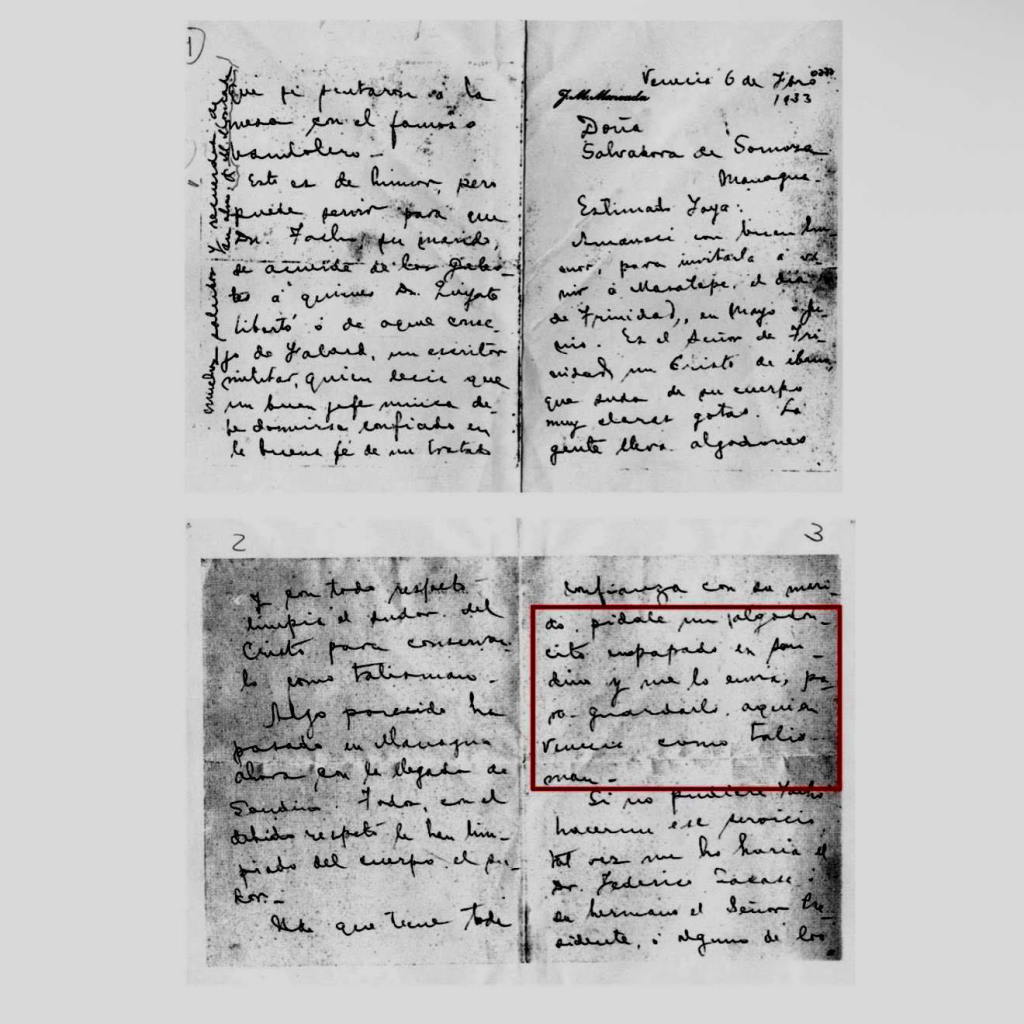 1
que se sentaron a la
mesa con el famoso
bandolero -
Esto es de humor, pero
puede servir para que
Dn. Tacho, su marido,
se acuerde de los Galeo-
tes a quienes Dn. Quijote
libertó ó de aquel conse-
jo de Folard, un escritor
militar, quien decía que
un buen jefe nunca de-
be dormirse confiado en
la buena fé de un tratado
muchos saludos y recuerdos de
J. M. Moncada
Venecia 6 de
1933
J. M. Moncada
Doña
Salvadora de Somoza
Managua.
Estimada Yoya:
Amanecí con buen hu-
mor, para invitarla a ve-
nir á Masatepe, el día
de Trinidad, en Mayo o Ju-
nio. Es el Señor de Tri-
nidad, un Cristo de
que suda de su cuerpo
muy claras gotas. La
gente lleva algodones
2
y con todo respeto
limpia el sudor del
Cristo para conservar-
lo como talismán.
Algo parecido ha
pasado en Managua
ahora con la llegada de
Sandino. Todos, con el
debido respeto le han lim-
piado del cuerpo el su-
dor.-
Ud. que tiene toda
3
confianza con su mari-
do, pídale un algodon-
cito empapado en San-
dino y me lo envía, pa-
ra guardarlo aquí en
Venecia como talis-
man -
Si no pudiere Tacho
hacerme ese servicio,
tal vez me lo haría el
Dr. Federico Sacasa ó
su hermano el Señor Pre-
sidente, ó alguno de los